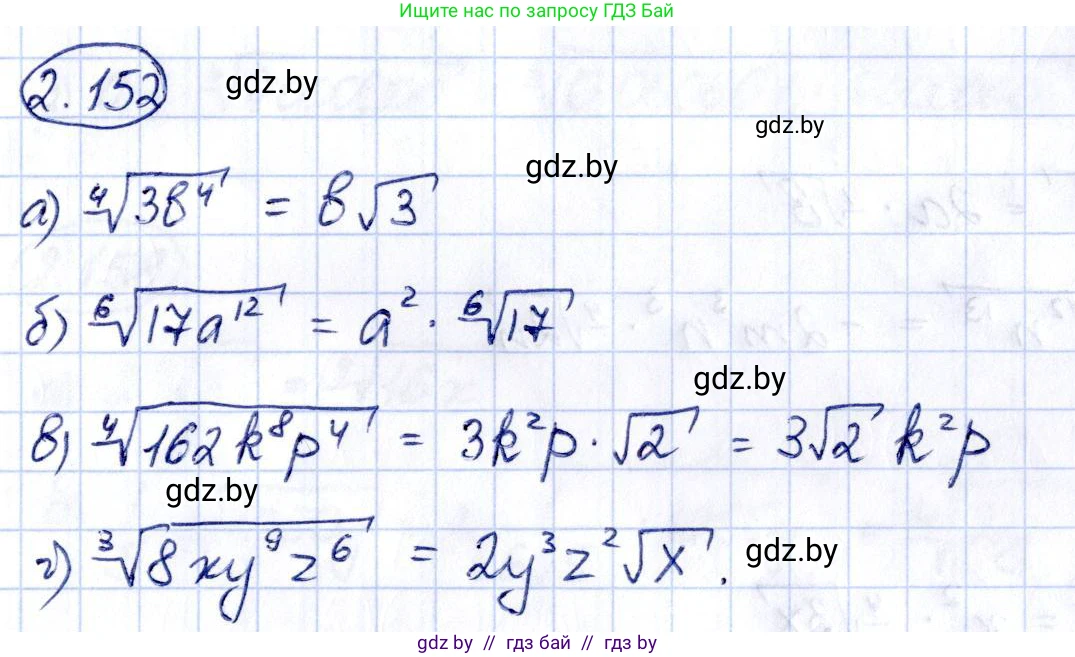 Ищите нас по запросу ГДЗ Бай
2.152 gdz.by
gdz.by
gdz.by
а) ⁴√(3b⁴) = b√3
б) ⁶√(17a¹²) = a² · ⁶√17
gdz.by
в) ⁴√(162k⁸p⁴) = 3k²p · √2 = 3√2 k²p
gdz.by
г) ³√(8xy⁹z⁶) = 2y³z²√x.
gdz.by
gdz by // гдз бай // гдз by